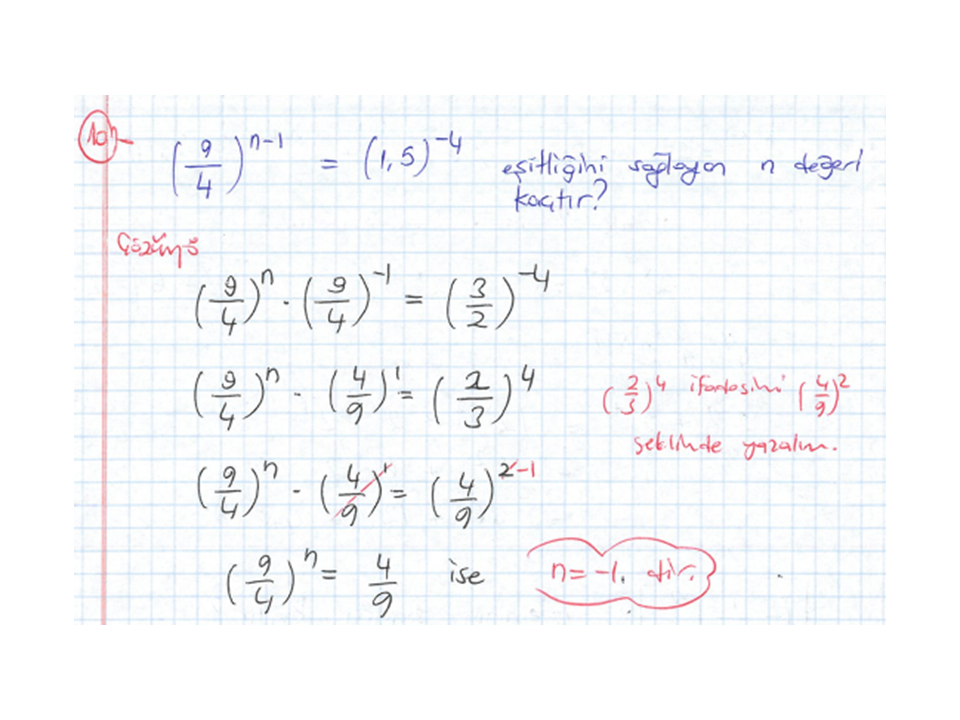 10)- (9/4)^(n-1) = (1,5)^(-4) eşitliğini sağlayan n değeri
kaçtır?
Çözüm:
(9/4)^n · (9/4)^(-1) = (3/2)^(-4)
(9/4)^n · (4/9)^1 = (2/3)^4 (2/3)^4 ifadesini (4/9)^2
şeklinde yazalım.
(9/4)^n · (4/9)^1 = (4/9)^(2-1)
(9/4)^n = 4/9 ise n=-1. dir.